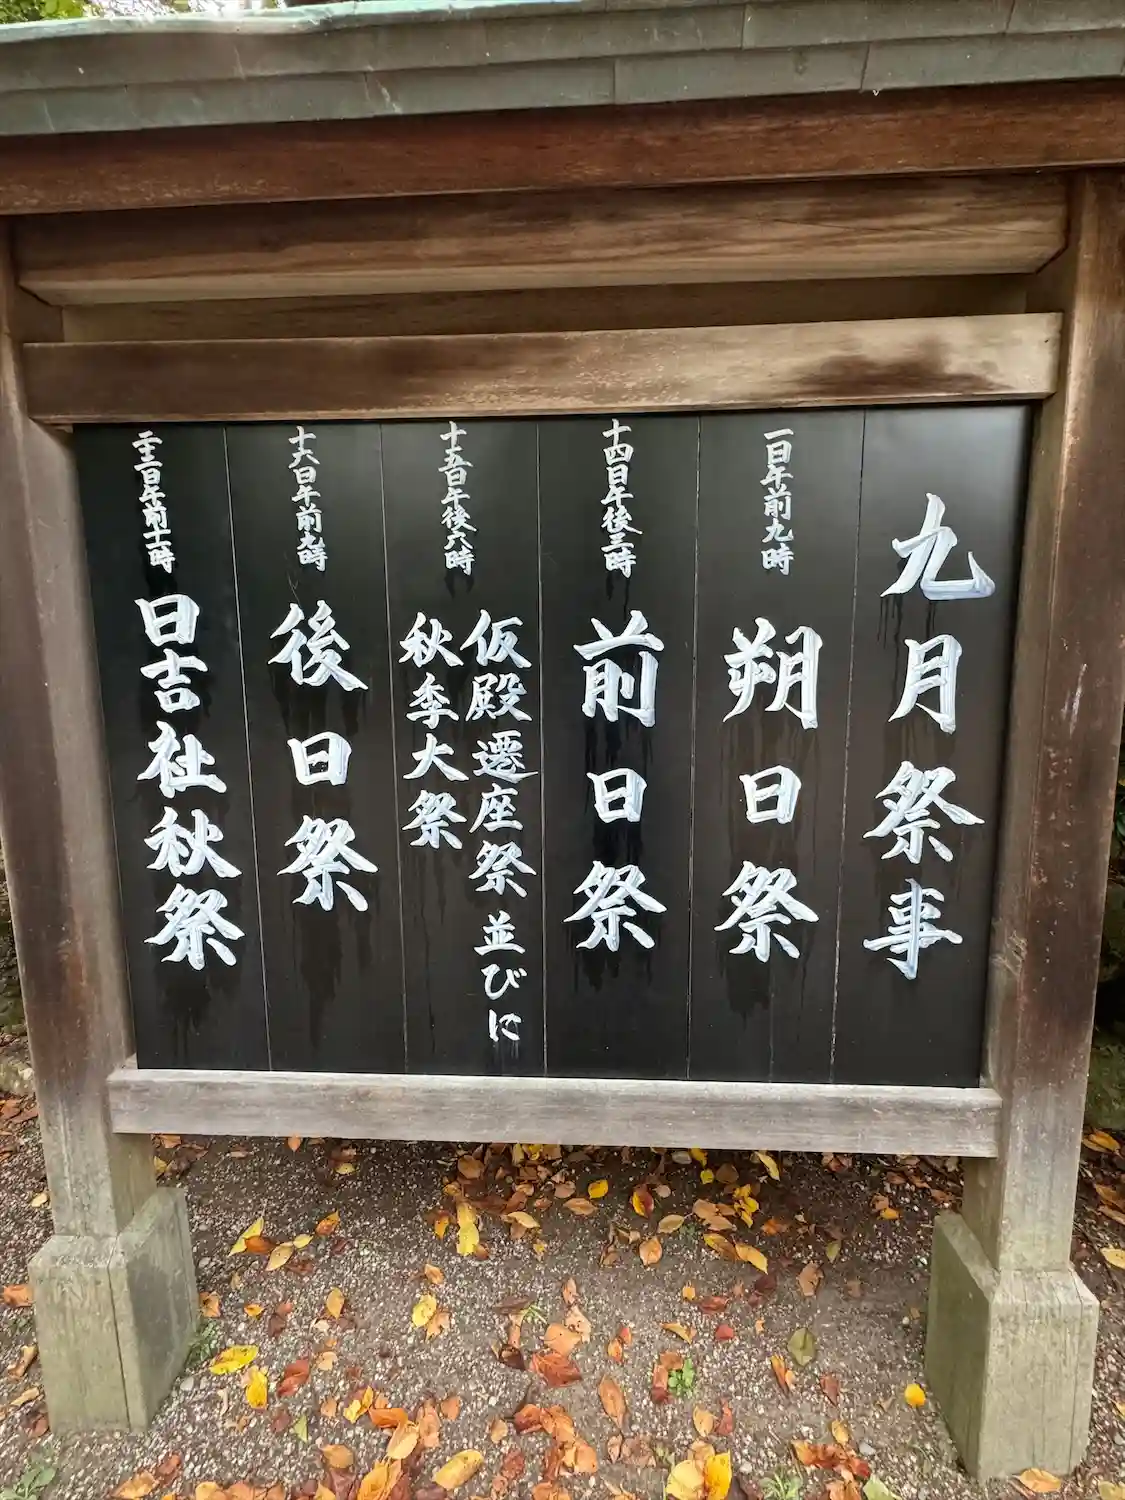 九月祭事
一日午前九時
朔日祭
十四日午後三時
前日祭
十五日午後六時
仮殿遷座祭 並びに
秋季大祭
十六日午前九時
後日祭
二十三日午前十一時
日吉社秋祭